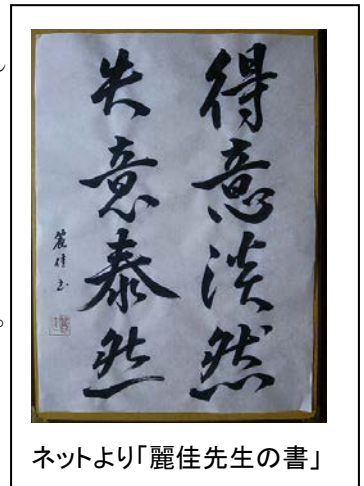 得意淡然
失意泰然
麗佳書
ネットより「麗佳先生の書」